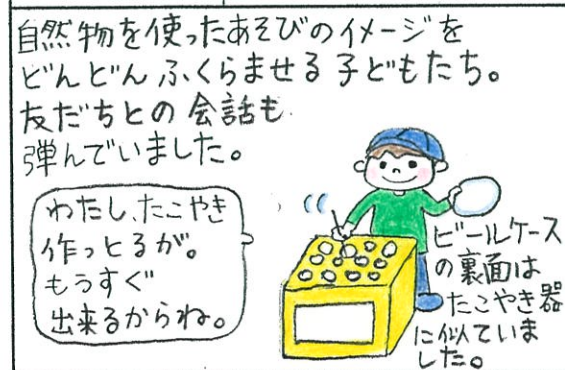 自然物を使ったあそびのイメージを
どんどんふくらませる子どもたち。
友だちとの会話も
弾んでいました。
わたし、たこやき
作っとるが。
もうすぐ
出来るからね。
ビールケース
の裏面は
たこやき器
に似ていま
した。